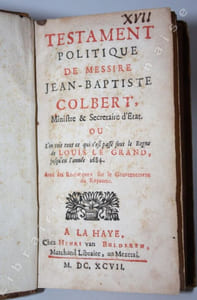 XVII
TESTAMENT
POLITIQUE
DE MESSIRE
JEAN-BAPTISTE
COLBERT,
Ministre & Secretaire d'Etat.
OU
L'on voit tout ce qui s'est passé sous le Regne
de LOUIS LE GRAND,
jusqu'en l'année 1684.
Avec des Remarques sur le Gouvernement
du Royaume.
A LA HAYE,
Chez HENRI van BULDEREN,
Marchand Libraire, au Mezeray.
M. DC. XCVII.